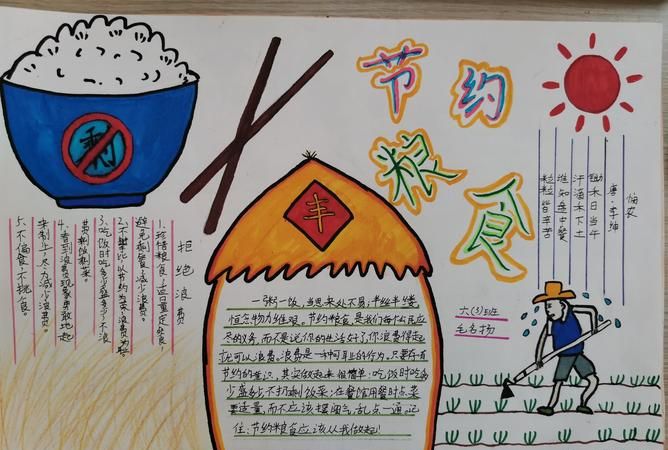 节约
粮食
丰
悯农
唐·李绅
锄禾日当午
汗滴禾下土
谁知盘中餐
粒粒皆辛苦
六(3)班
毛名扬
拒绝浪费
1、珍惜粮食,适量定餐,
避免剩餐,减少浪费。
2、不攀比,以节约为荣,浪费为耻
3、吃饭时吃多少盛多少不浪
费剩饭剩菜。
4、看到浪费现象勇敢地起
来制止,尽力减少浪费。
5、不偏食,不挑食。
一粥一饭,当思来处不易;半丝半缕,
恒念物力维艰。节约粮食是我们每个公民应
尽的义务,而不是说你的生活好了你浪费得起
就可以浪费。浪费是一种可耻的行为,只要存有
节约的意识,其实做起来很简单:吃饭时吃多
少盛多少不扔剩饭菜;在餐馆用餐时点菜
要适量,而不应该摆阔气,乱点一通。记
住:节约粮食应该从我做起!